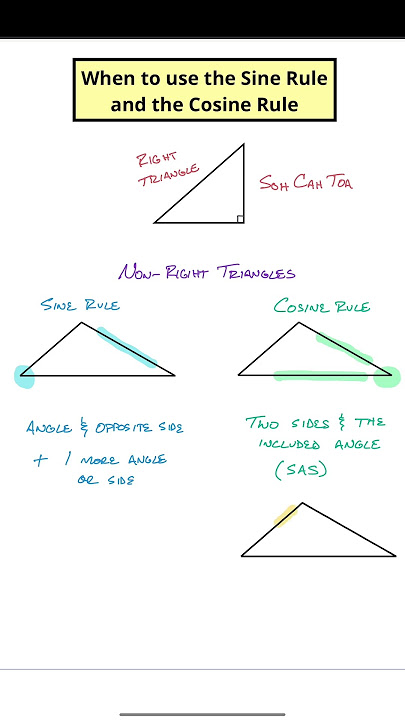 When to use the Sine Rule
and the Cosine Rule
RIGHT
TRIANGLE
SOH CAH TOA
NON-RIGHT TRIANGLES
SINE RULE
COSINE RULE
ANGLE & OPPOSITE SIDE
+ 1 MORE ANGLE
OR SIDE
TWO SIDES & THE
INCLUDED ANGLE
(SAS)